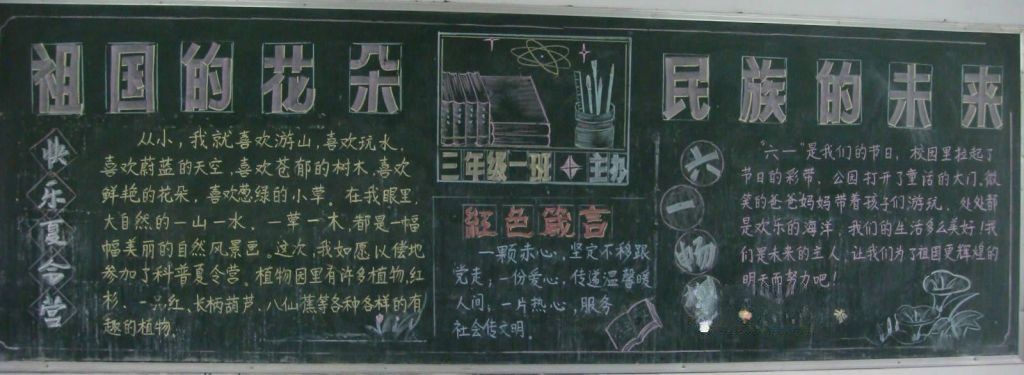 祖国的花朵
快乐夏令营
从小，我就喜欢游山，喜欢玩水，
喜欢蔚蓝的天空，喜欢苍郁的树木，喜欢
鲜艳的花朵，喜欢葱绿的小草。在我眼里，
大自然的一山一水，一草一木，都是一幅
幅美丽的自然风景画。这次，我如愿以偿地
参加了科普夏令营。植物园里有许多植物，红
杉、一品红、长柄葫芦、八仙蕉等各种各样的有
趣的植物…
三年级一班 主办
红色箴言
一颗赤心，坚定不移跟
党走；一份爱心，传递温馨暖
人间；一片热心，服务
社会传文明。
民族的未来
六一畅
“六一”是我们的节日，校园里拉起了
节日的彩带，公园打开了童话的大门，微
笑的爸爸妈妈带着孩子们游玩，处处都
是欢乐的海洋，我们的生活多么美好！我
们是未来的主人，让我们为了祖国更辉煌的
明天而努力吧！